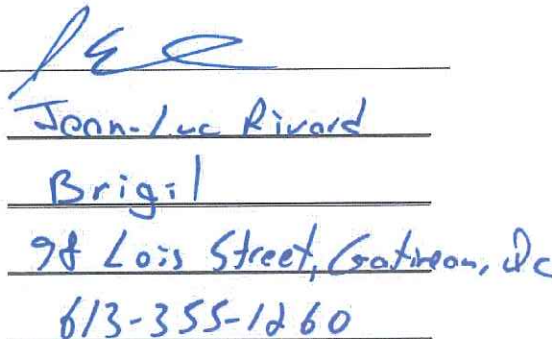 Jean-Luc Rivard
Brigil
98 Lois Street, Gatineau, Qc
613-355-1260